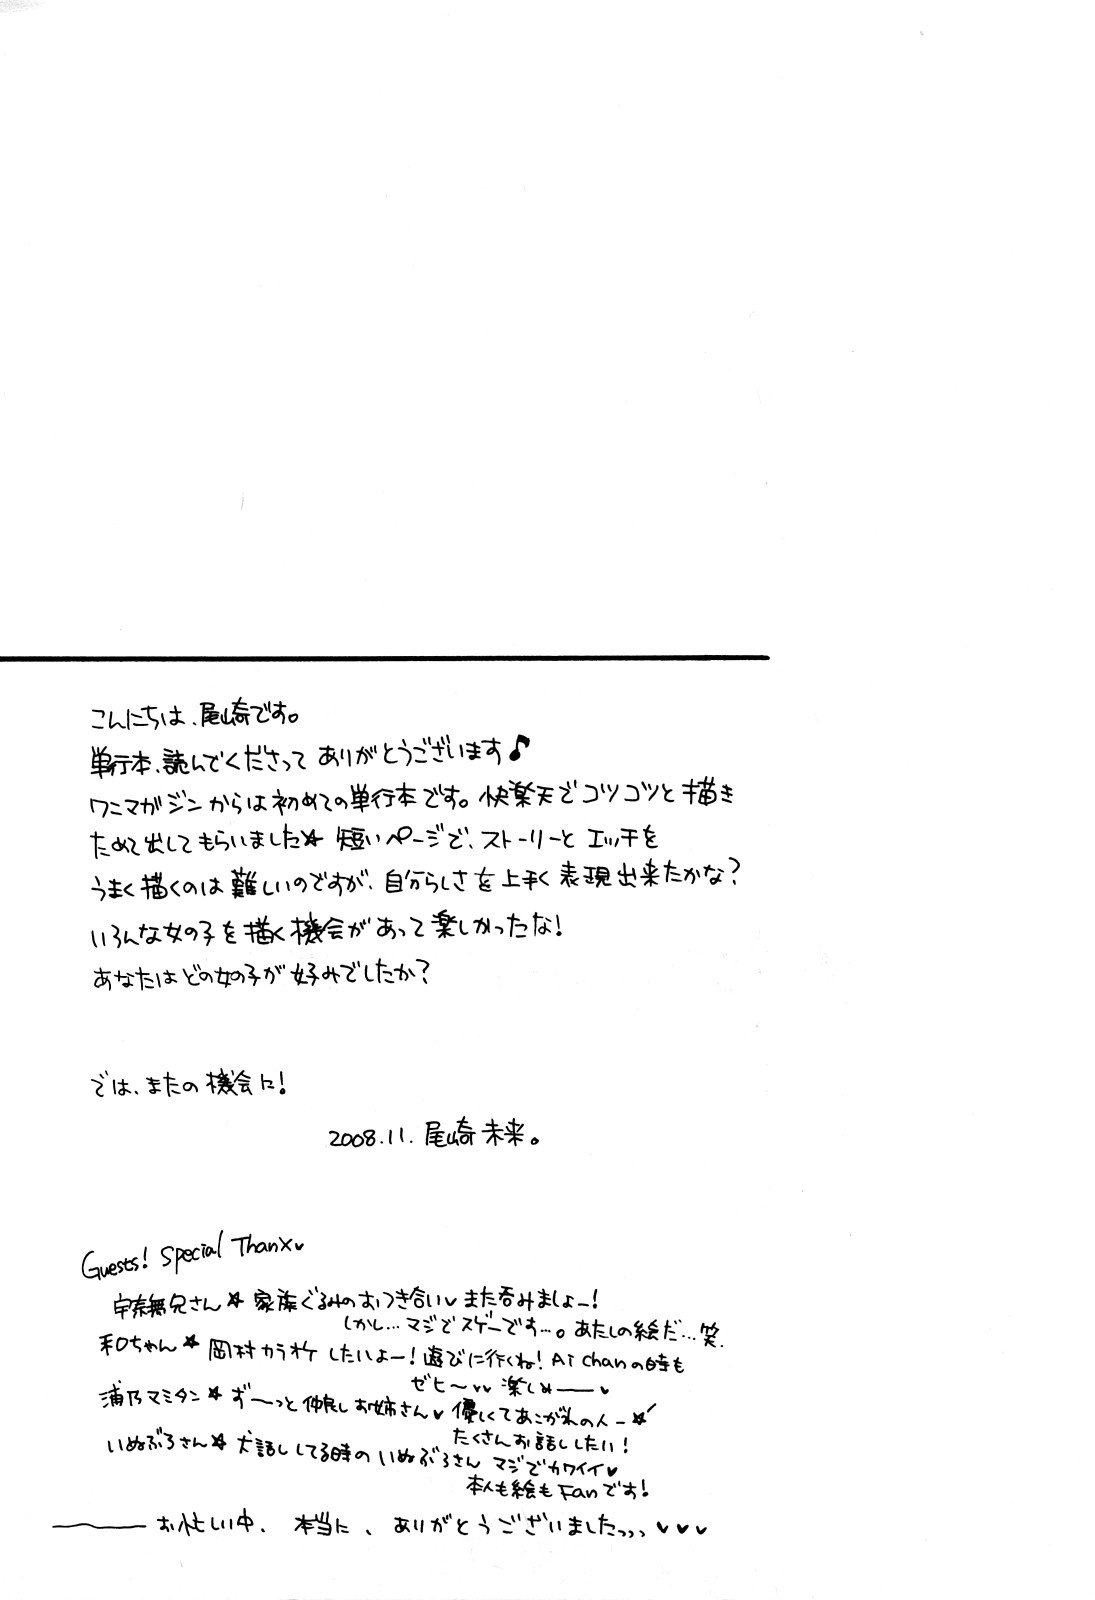 こんにちは、尾崎です。
単行本、読んでくださって ありがとうございます♪
ワニマガジンからは初めての単行本です。快楽天でコツコツと描き
ためて出してもらいました☆ 短いページで、ストーリーと エッチを
うまく描くのは難しいのですが、自分らしさを上手く表現出来たかな?
いろんな女の子を描く機会があって楽しかったな!
あなたはどの女の子が好みでしたか?
では、またの機会に!
2008.11. 尾崎未来。
Guests! Special Thanx♥
宇奈無兄さん☆ 家族ぐるみのおつき合い♥ また呑みましょー!
しかし…マジでスゲーです…。あたしの絵だ…笑.
和ちゃん☆ 岡村カラオケしたいよー!遊びに行くね! Ai chanの時も
ゼヒ〜♥♥ 楽しめ――♥
浦乃マミタン☆ ず〜っと仲良しお姉さん♥ 優しくてあこがれの人ー☆
たくさんお話ししたい!
いぬぶろさん☆ 犬話ししてる時の いぬぶろさん マジでカワイイ♥
本人も絵も Fanです!
――お忙しい中、本当に、ありがとうございましたっっっ♥♥♥